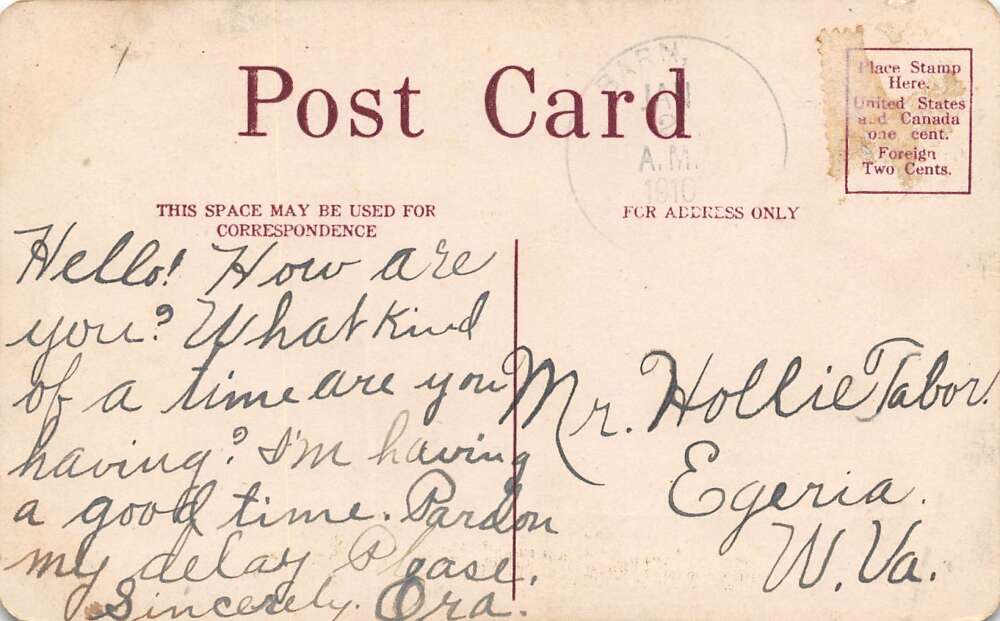 Post Card
BARN,
JAN
A.M.
1910
Place Stamp
Here.
United States
and Canada
one cent.
Foreign
Two Cents.
THIS SPACE MAY BE USED FOR
CORRESPONDENCE
FOR ADDRESS ONLY
Hello! How are
you? What kind
of a time are you
having? I'm having
a good time. Pardon
my delay Please.
Sincerely. Ora.
Mr. Hollie Tabor.
Egeria.
W. Va.